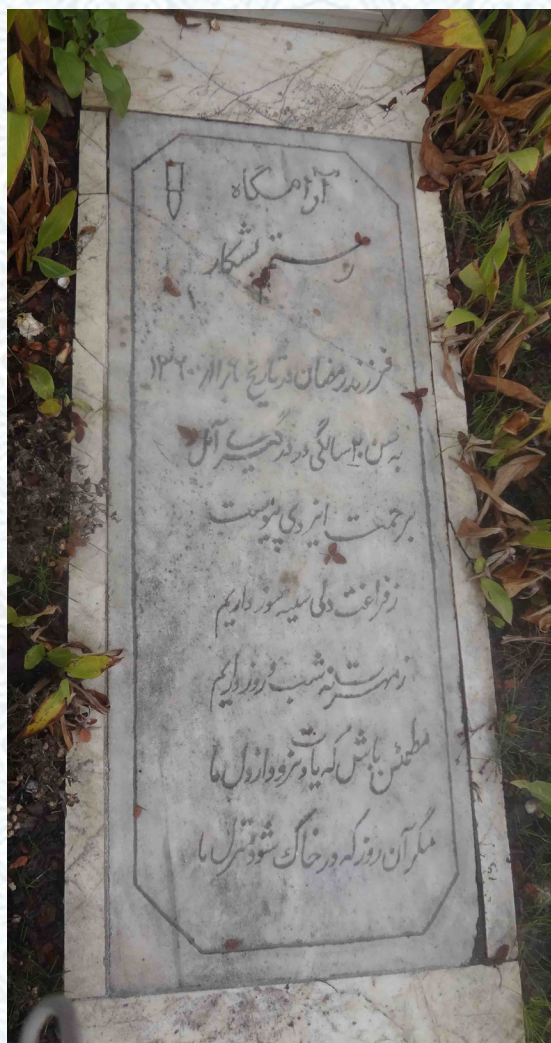 آرامگاه
رستم بشکار
فرزند رمضان در تاریخ ۱۳۶۰/۱۱/۶
به سن ۲۰ سالگی در درگیری آمل
برحمت ایزدی پیوست
ز فراغت دلی سینه سوز داریم
ز هر شب و روز داریم
مطمئن باش که یادت نرود از دل ما
مگر آن روز که در خاک شود منزل ما